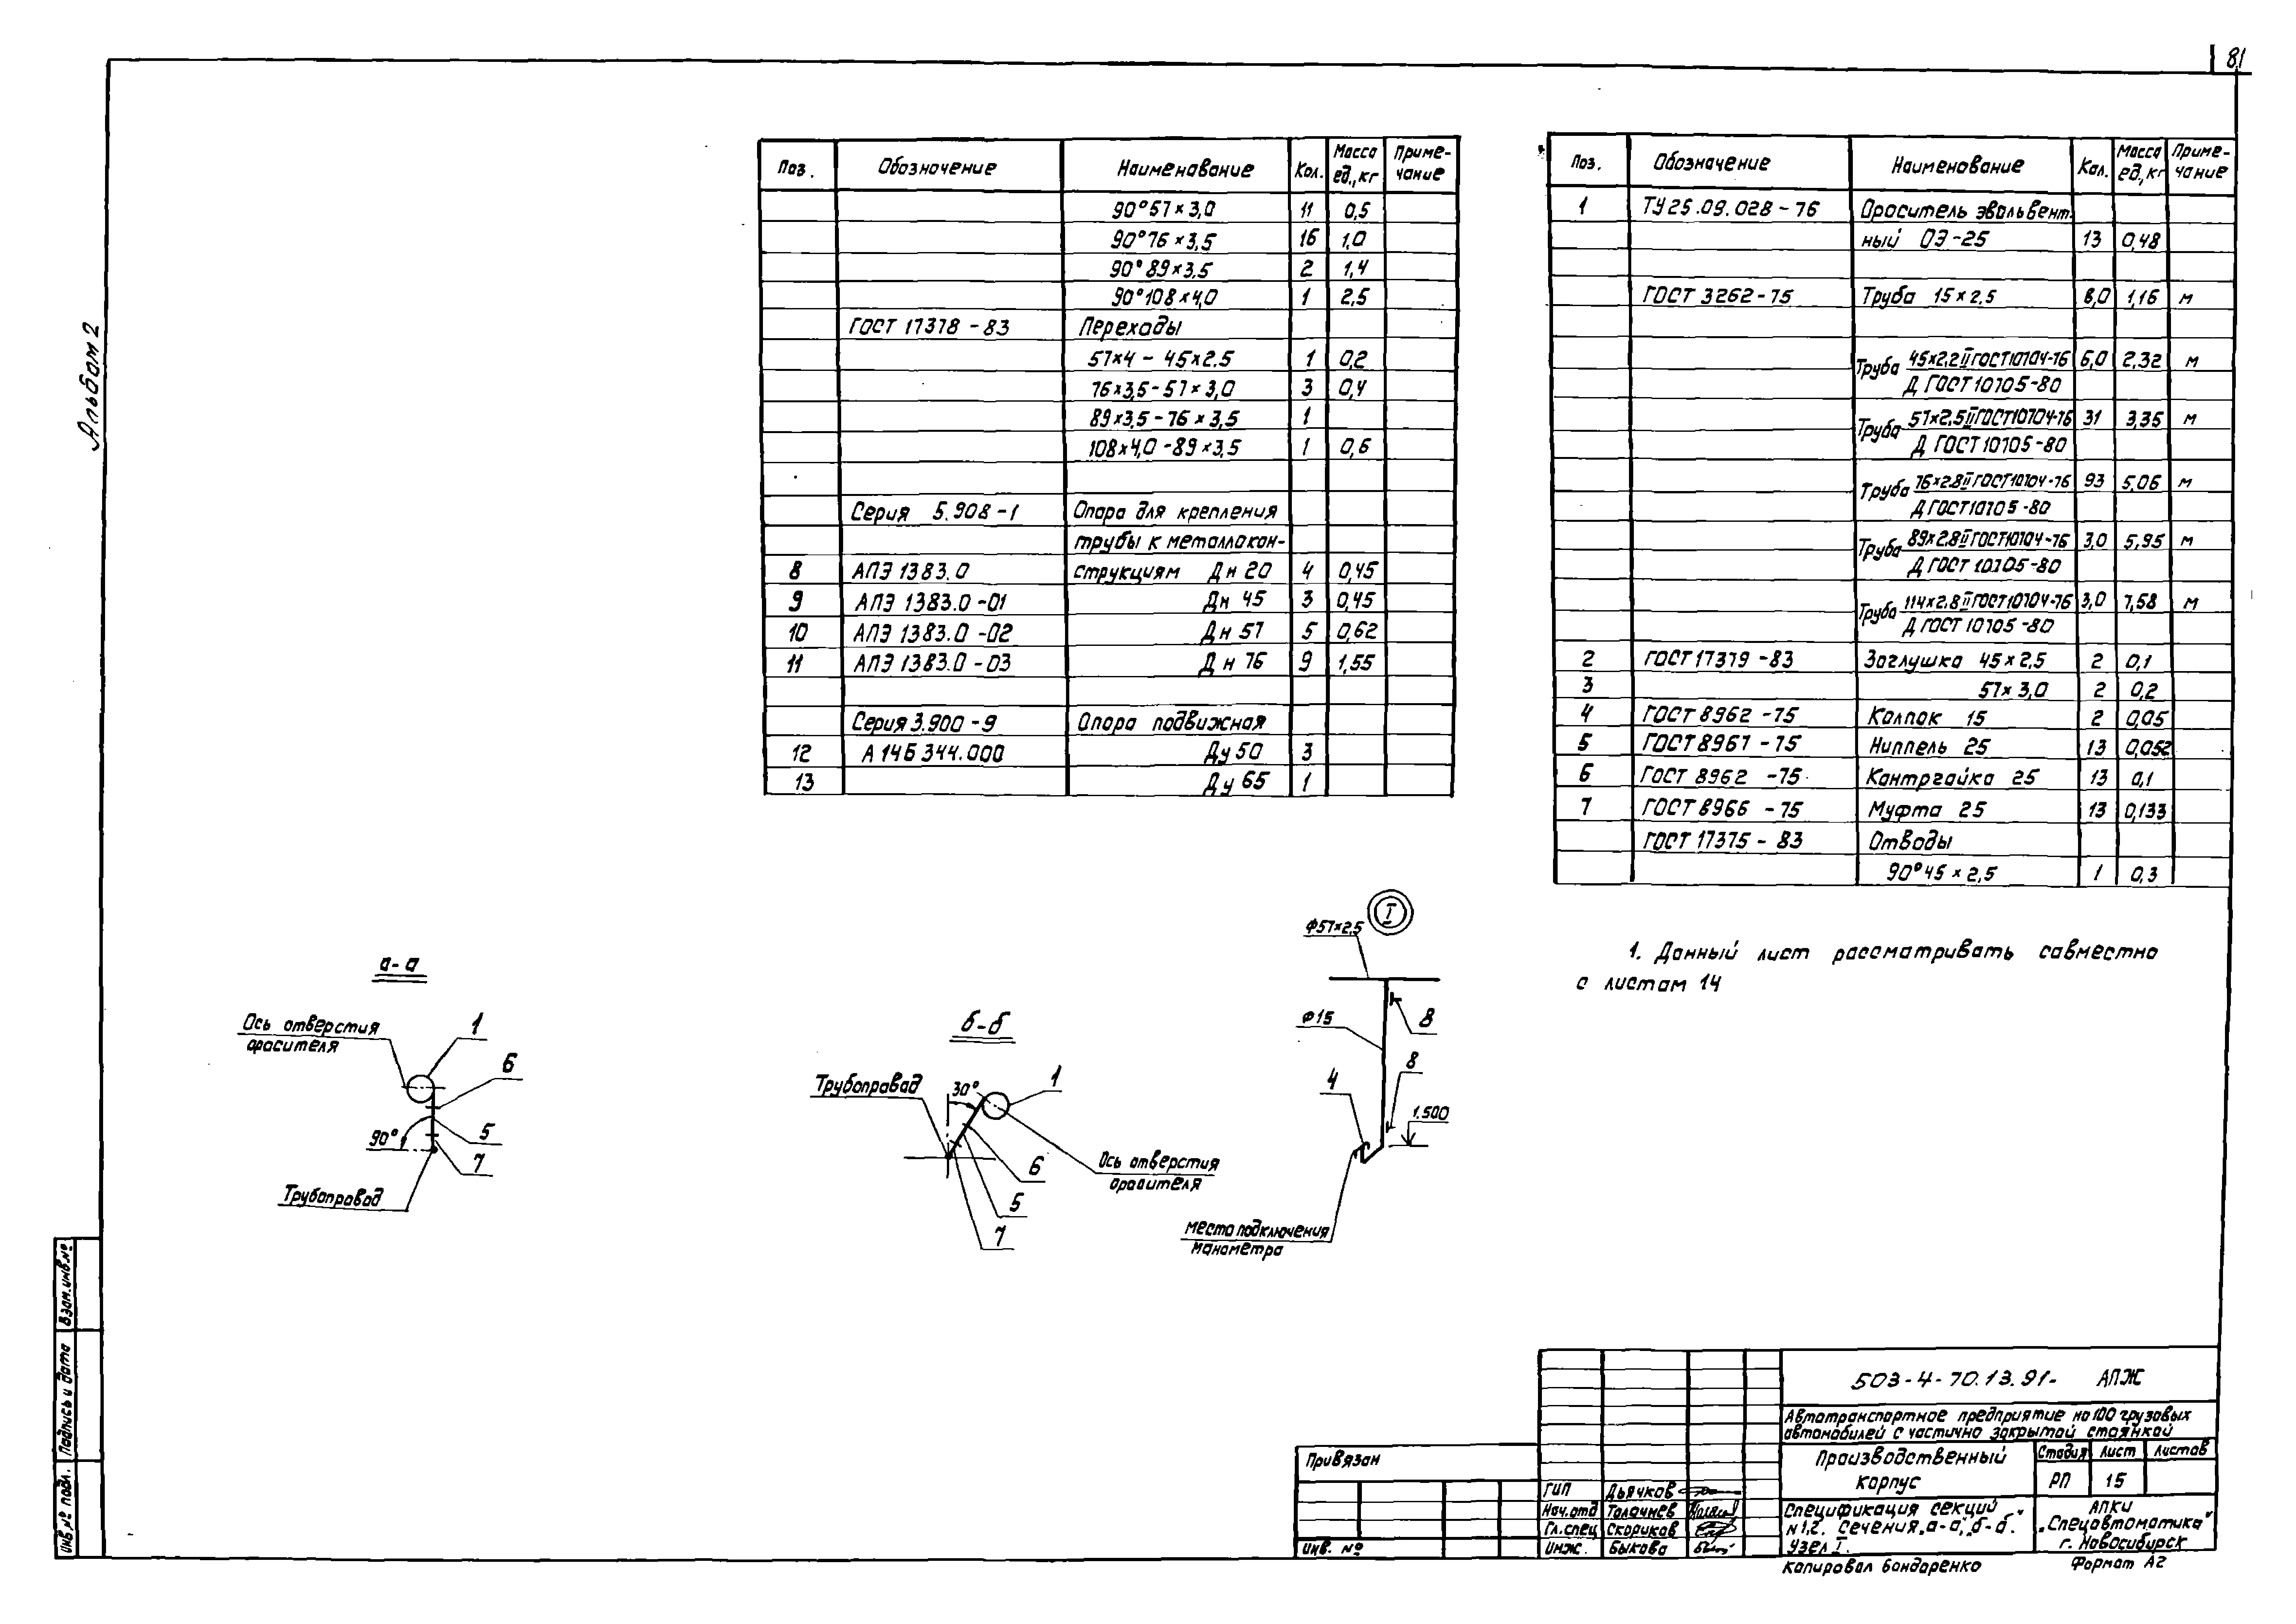 81
Альбом 2
Поз. Обозначение Наименование Кол. Масса ед., кг Приме-чание
90°57×3,0 11 0,5
90°76×3,5 16 1,0
90°89×3,5 2 1,4
90°108×4,0 1 2,5
ГОСТ 17378-83 Переходы
57×4 - 45×2.5 1 0,2
76×3,5-57×3,0 3 0,4
89×3,5-76×3,5 1
108×4,0-89×3,5 1 0,6
Серия 5.908-1 Опора для крепления
трубы к металлокон-
8 АПЭ 1383.0 струкциям Дн 20 4 0,45
9 АПЭ 1383.0-01 Дн 45 3 0,45
10 АПЭ 1383.0-02 Дн 57 5 0,62
11 АПЭ 1383.0-03 Дн 76 9 1,55
Серия 3.900-9 Опора подвижная
12 А14Б 344.000 Ду 50 3
13 Ду 65 1
Поз. Обозначение Наименование Кол. Масса ед., кг Приме-чание
1 ТУ25.09.028-76 Ороситель эвольвент
ный ОЭ-25 13 0,48
ГОСТ 3262-75 Труба 15×2,5 8,0 1,16 м
Труба 45×2.2 II ГОСТ10704-76 6,0 2,32 м
Д ГОСТ10705-80
Труба 57×2,5 II ГОСТ10704-76 31 3,35 м
Д ГОСТ10705-80
Труба 76×2.8 II ГОСТ10704-76 93 5,06 м
Д ГОСТ10705-80
Труба 89×2.8 II ГОСТ10704-76 3,0 5,95 м
Д ГОСТ 10705-80
Труба 114×2.8 II ГОСТ10704-76 3,0 7,58 м
Д ГОСТ 10705-80
2 ГОСТ17379-83 Заглушка 45×2,5 2 0,1
3 57×3,0 2 0,2
4 ГОСТ 8962-75 Колпак 15 2 0,05
5 ГОСТ 8967-75 Ниппель 25 13 0,052
6 ГОСТ 8962-75 Контргайка 25 13 0,1
7 ГОСТ 8966-75 Муфта 25 13 0,133
ГОСТ 17375-83 Отводы
90°45×2,5 1 0,3
1. Данный лист рассматривать совместно
с листом 14
а-а
Ось отверстия
оросителя
1
6
5
90°
7
Трубопровод
б-б
Трубопровод
30°
1
6
5
7
Ось отверстия
оросителя
I
Ф57×2,5
Ф15
8
8
4
1.500
Место подключения
манометра
Взам.инв.№
Подпись и дата
Инв.№ подл.
503-4-70.13.91- АПЖ
Автотранспортное предприятие на 100 грузовых
автомобилей с частично закрытой стоянкой
Производственный
корпус
Стадия Лист Листов
РП 15
Спецификация секций
№1,2. Сечения „а-а", „б-б".
Узел I.
АПКИ
„Спецавтоматика"
г. Новосибирск
Привязан
Инв. №
ГИП Дьячков
Нач.отд Толочнев
Гл.спец Скориков
Инж. Быкова
Копировал Бондаренко
Формат А2